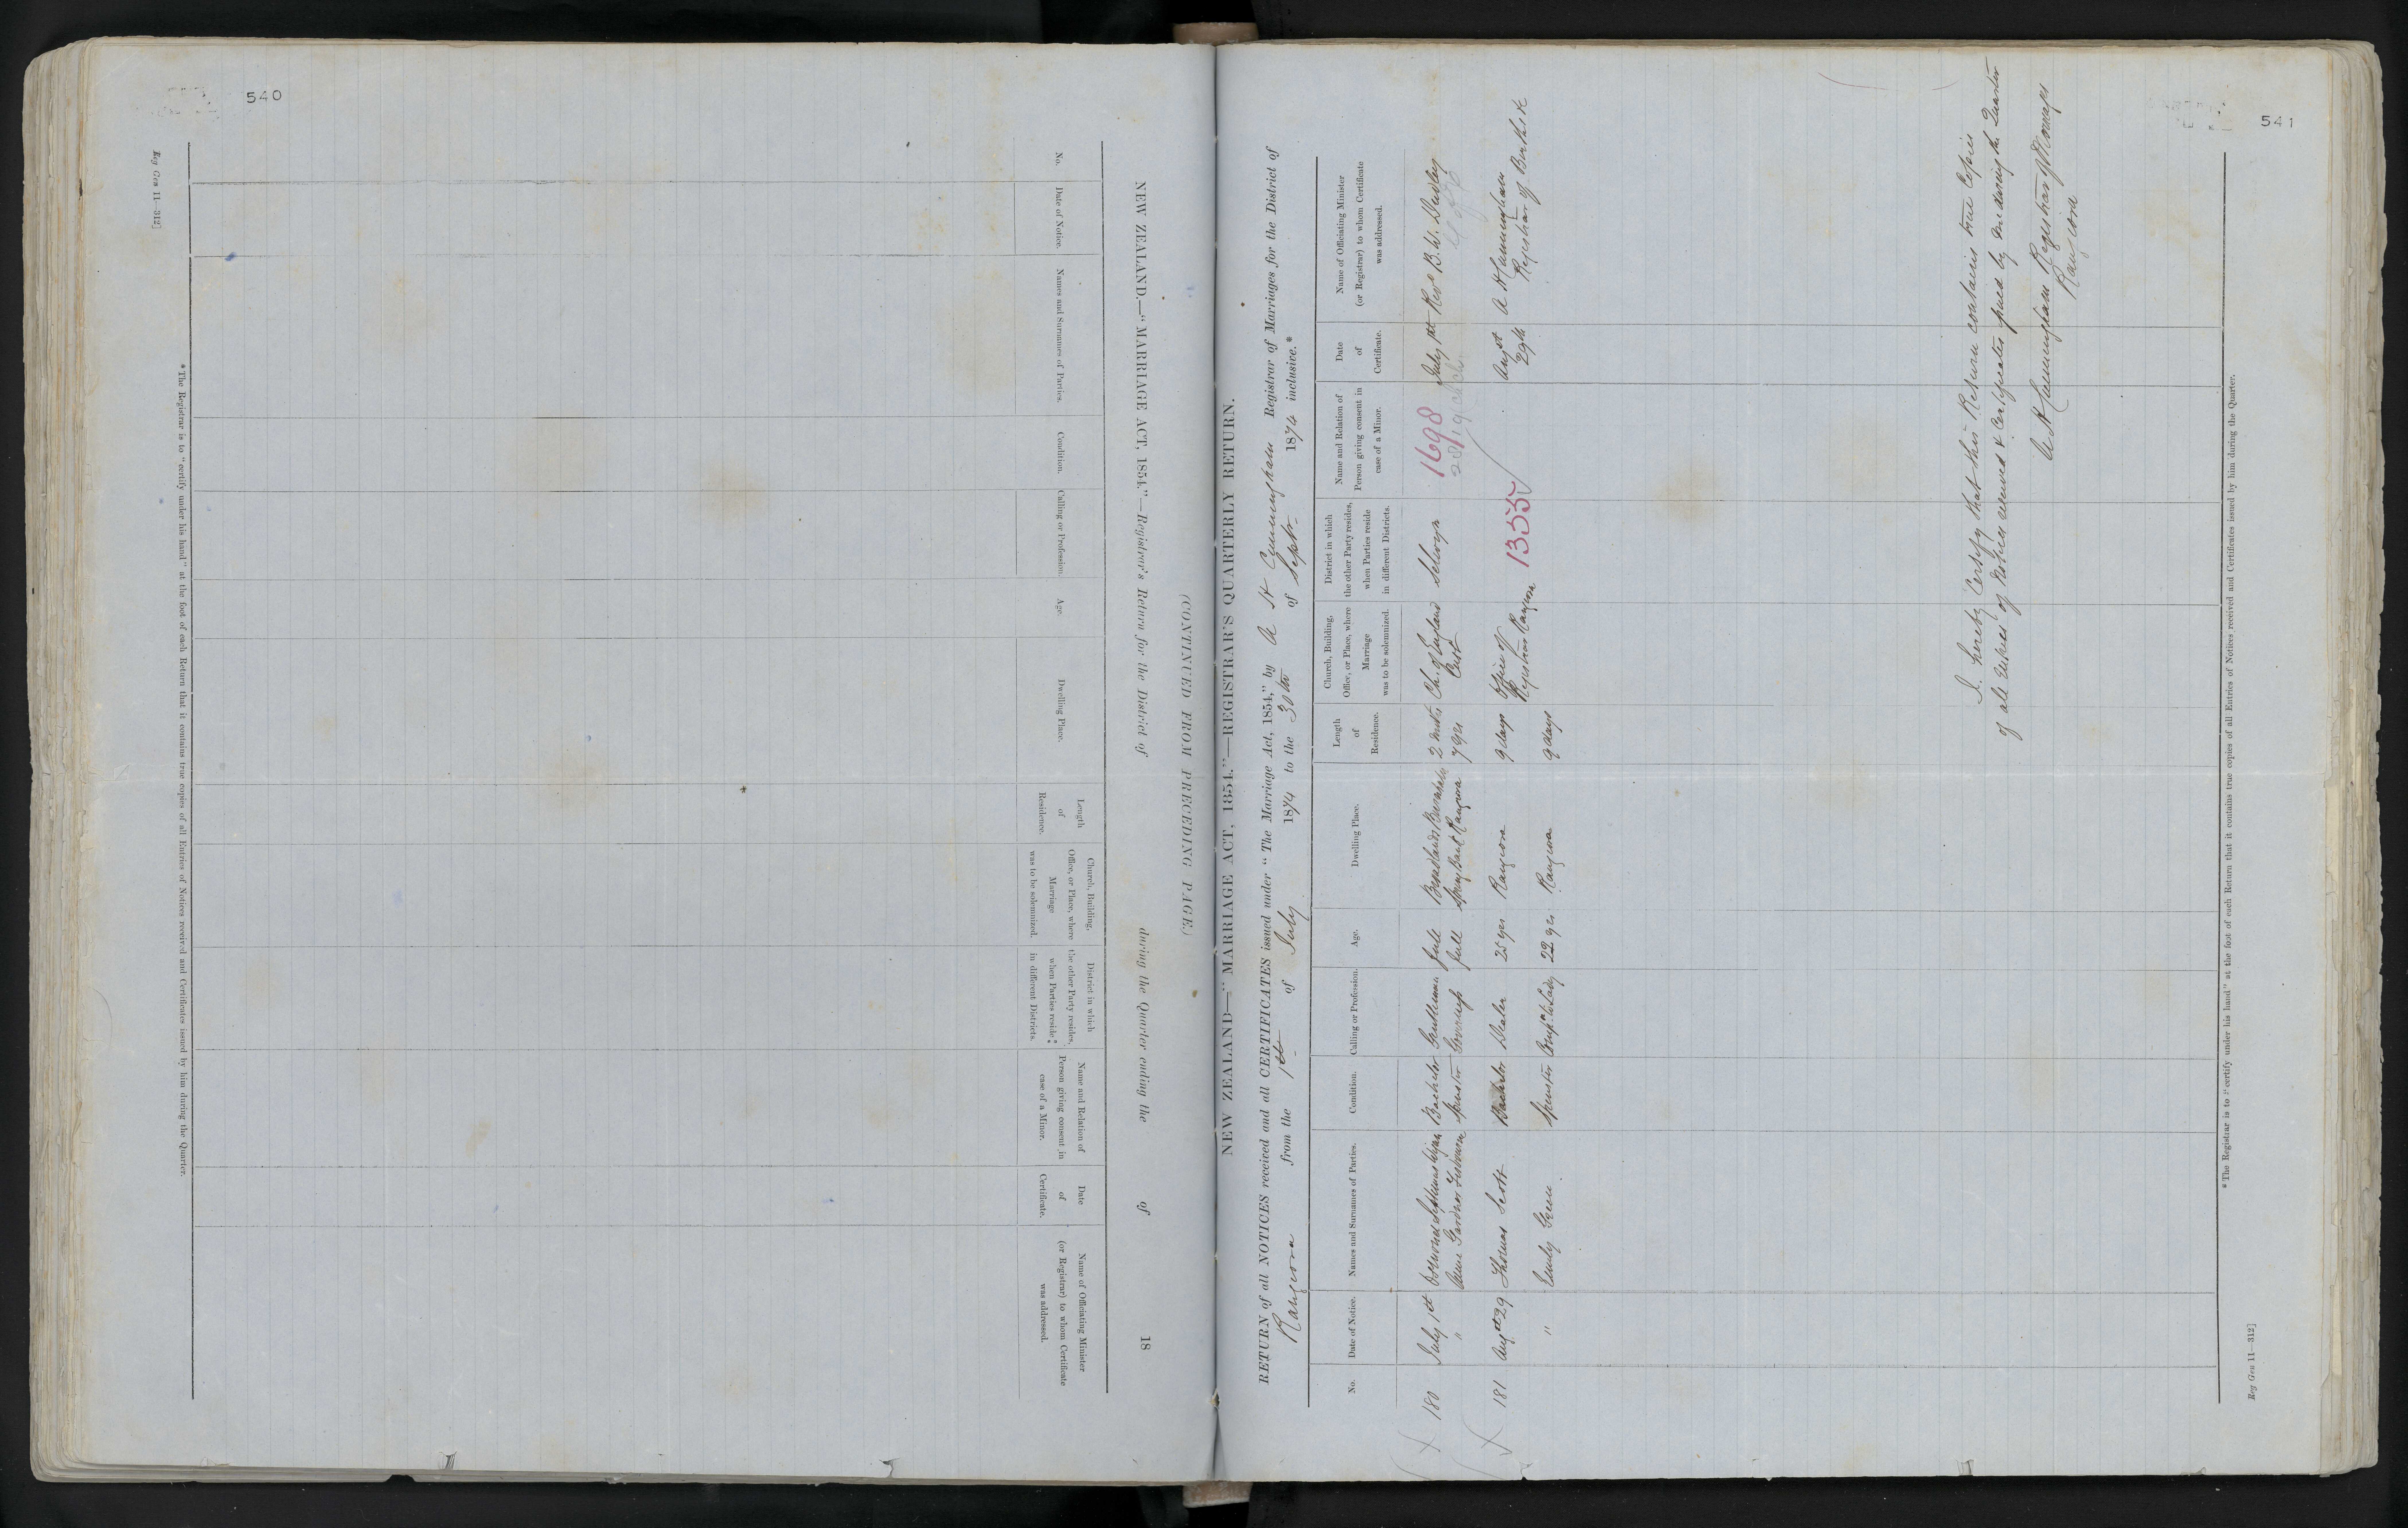 540
Reg Gen 11—312]
NEW ZEALAND.—"MARRIAGE ACT, 1854."—Registrar's Return for the District of during the Quarter ending the of 18
(CONTINUED FROM PRECEDING PAGE.)
No.
Date of Notice.
Names and Surnames of Parties.
Condition.
Calling or Profession.
Age.
Dwelling Place.
Length
of
Residence.
Church, Building,
Office, or Place, where
Marriage
was to be solemnized.
District in which
the other Party resides,
when Parties reside
in different Districts.
Name and Relation of
Person giving consent in
case of a Minor.
Date
of
Certificate.
Name of Officiating Minister
(or Registrar) to whom Certificate
was addressed.
* The Registrar is to "certify under his hand" at the foot of each Return that it contains true copies of all Entries of Notices received and Certificates issued by him during the Quarter.
541
NEW ZEALAND—"MARRIAGE ACT, 1854."—REGISTRAR'S QUARTERLY RETURN.
RETURN of all NOTICES received and all CERTIFICATES issued under "The Marriage Act, 1854," by A H Cunningham Registrar of Marriages for the District of
Rangiora from the 1st of July 1874 to the 30th of Septr 1874 inclusive.*
No.
Date of Notice.
Names and Surnames of Parties.
Condition.
Calling or Profession.
Age.
Dwelling Place.
Length
of
Residence.
Church, Building,
Office, or Place, where
Marriage
was to be solemnized.
District in which
the other Party resides,
when Parties reside
in different Districts.
Name and Relation of
Person giving consent in
case of a Minor.
Date
of
Certificate.
Name of Officiating Minister
(or Registrar) to whom Certificate
was addressed.
180 July 1st Septimus Bachelor Gentleman full 2 mnts Ch. of England Selwyn 1698 July 1st Revd B. W. Dudley
" Anne Gardner Spinster Governess full Rangiora 7 yrs Cust
181 Augst 29 Thomas Scott Bachelor Dealer 25 yrs Rangiora 9 days Office of Augst A H Cunningham
Registrar Rangiora 1355 29th Registrar of Births &c
" Emily Green Spinster Compn to Lady 22 yrs Rangiora 9 days
I hereby Certify that this Return contains true Copies
of all Entries of Notices received & Certificates issued by me during the Quarter
A H Cunningham Registrar of Marriages
Rangiora
* The Registrar is to "certify under his hand" at the foot of each Return that it contains true copies of all Entries of Notices received and Certificates issued by him during the Quarter.
Reg Gen 11—312]